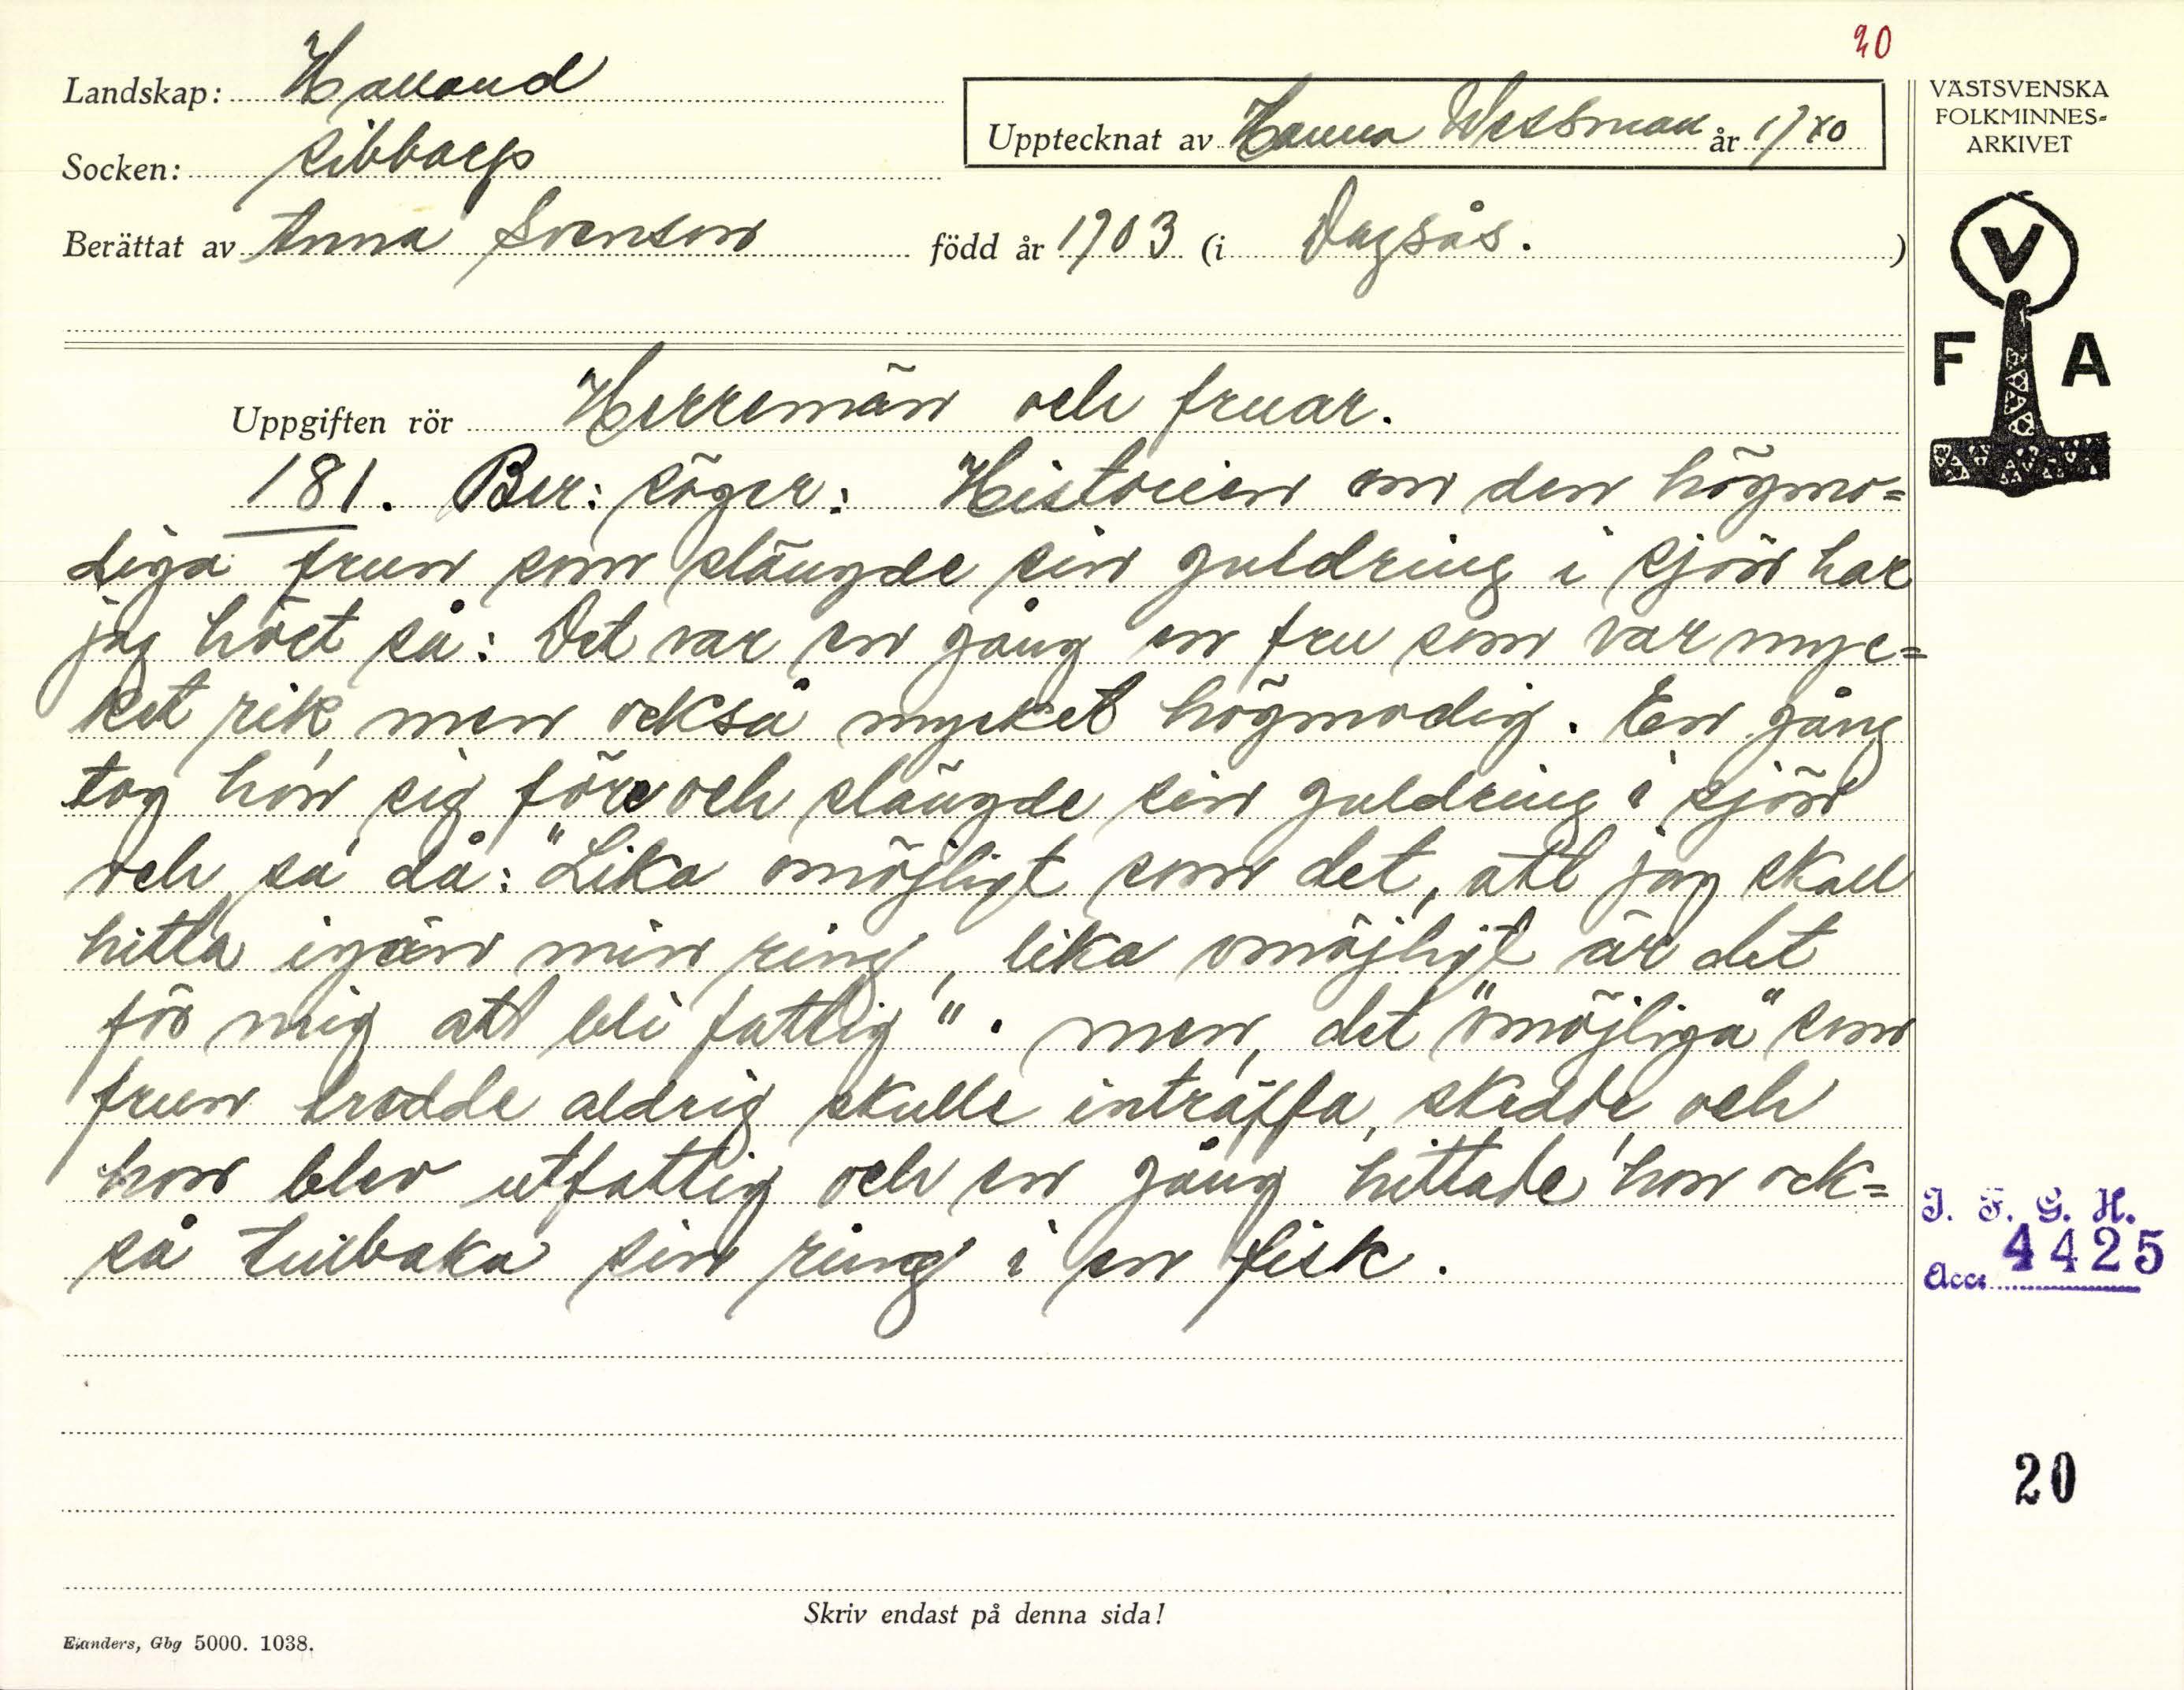 20
Landskap: Halland
Socken: Sibbarp
Upptecknat av Hanna Wessman år 1940
Berättat av Anna Svenson född år 1903 (i Dagsås. )
VÄSTSVENSKA
FOLKMINNES-
ARKIVET
V
F A
Uppgiften rör Herremän och fruar.
181. Ber: säger: Historien om den högmo=
diga frun som slängde sin guldring i sjön har
jag hört så: Det var en gång en fru som var myc=
ket rik men också mycket högmodig. En gång
tog hon sig före och slängde sin guldring i sjön
och sa då: "Lika omöjligt som det, att jag skall
hitta igän min ring, lika omöjligt är det
för mig att bli fattig". men, det "omöjliga" som
frun trodde aldrig skulle inträffa, skedde, och
hon blev utfattig och en gång hittade hon ock=
så tillbaka sin ring i en fisk.
I. F. G. H.
Acc. 4425
20
Skriv endast på denna sida!
Elanders, Gbg 5000. 1038.